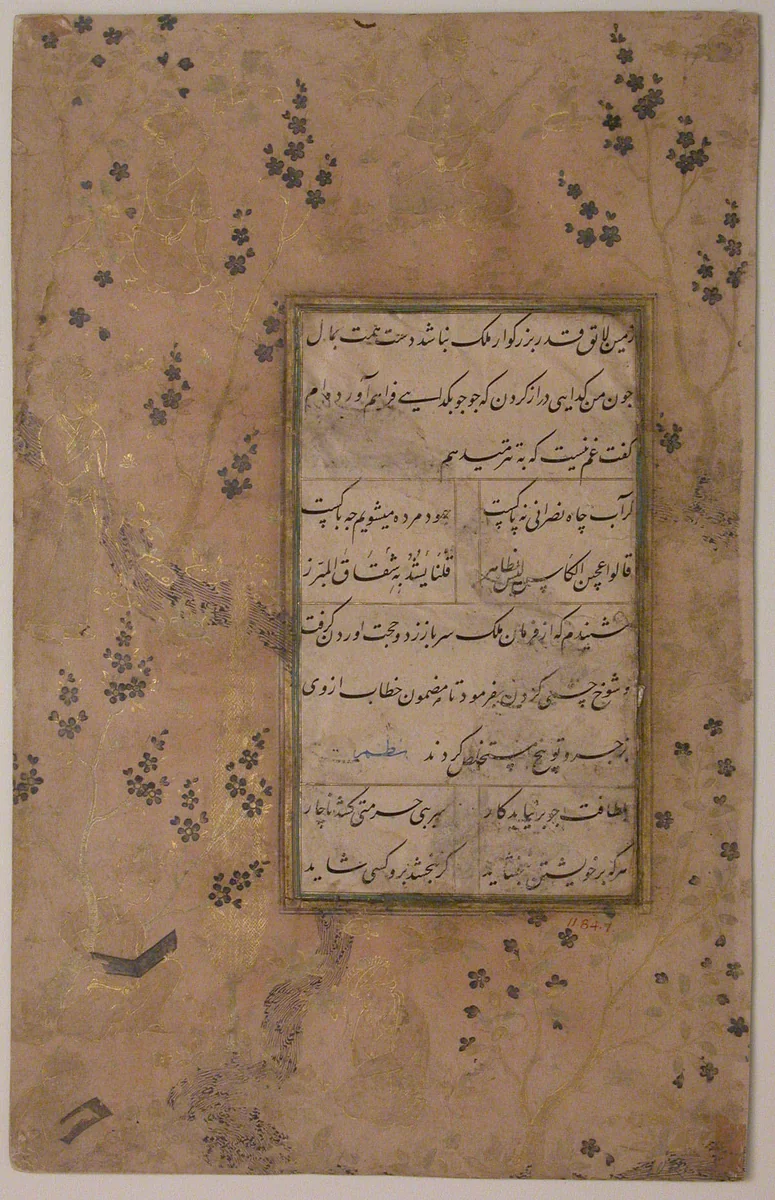 زمین لایق قدر بزرکوار ملک نباشد دست همت بمال
جون من کدایی دراز کردن که جو جو بکدایی فراهم آورده ام
کفت غم نیست که به تتر میدهم
کر آب چاه نصرانی نه پاکست جهود مرده میشویم چه باکست
قالوا عجین الکلس لیس بطاهر قلنا یسد به شقاق المبرز
شنیدم که از فرمان ملک سر باز زد و حجت اوردن کرفت
و شوخ چشمی کردن بفرمود تا مضمون خطاب از وی
بزجر و توبیخ مستخلص کردند نظم
بلطافت جو بر نیاید کار سر به بی حرمتی کشد ناچار
هرکه بر خویشتن نبخشاید کر نبخشد برو کسی شاید
1184.7